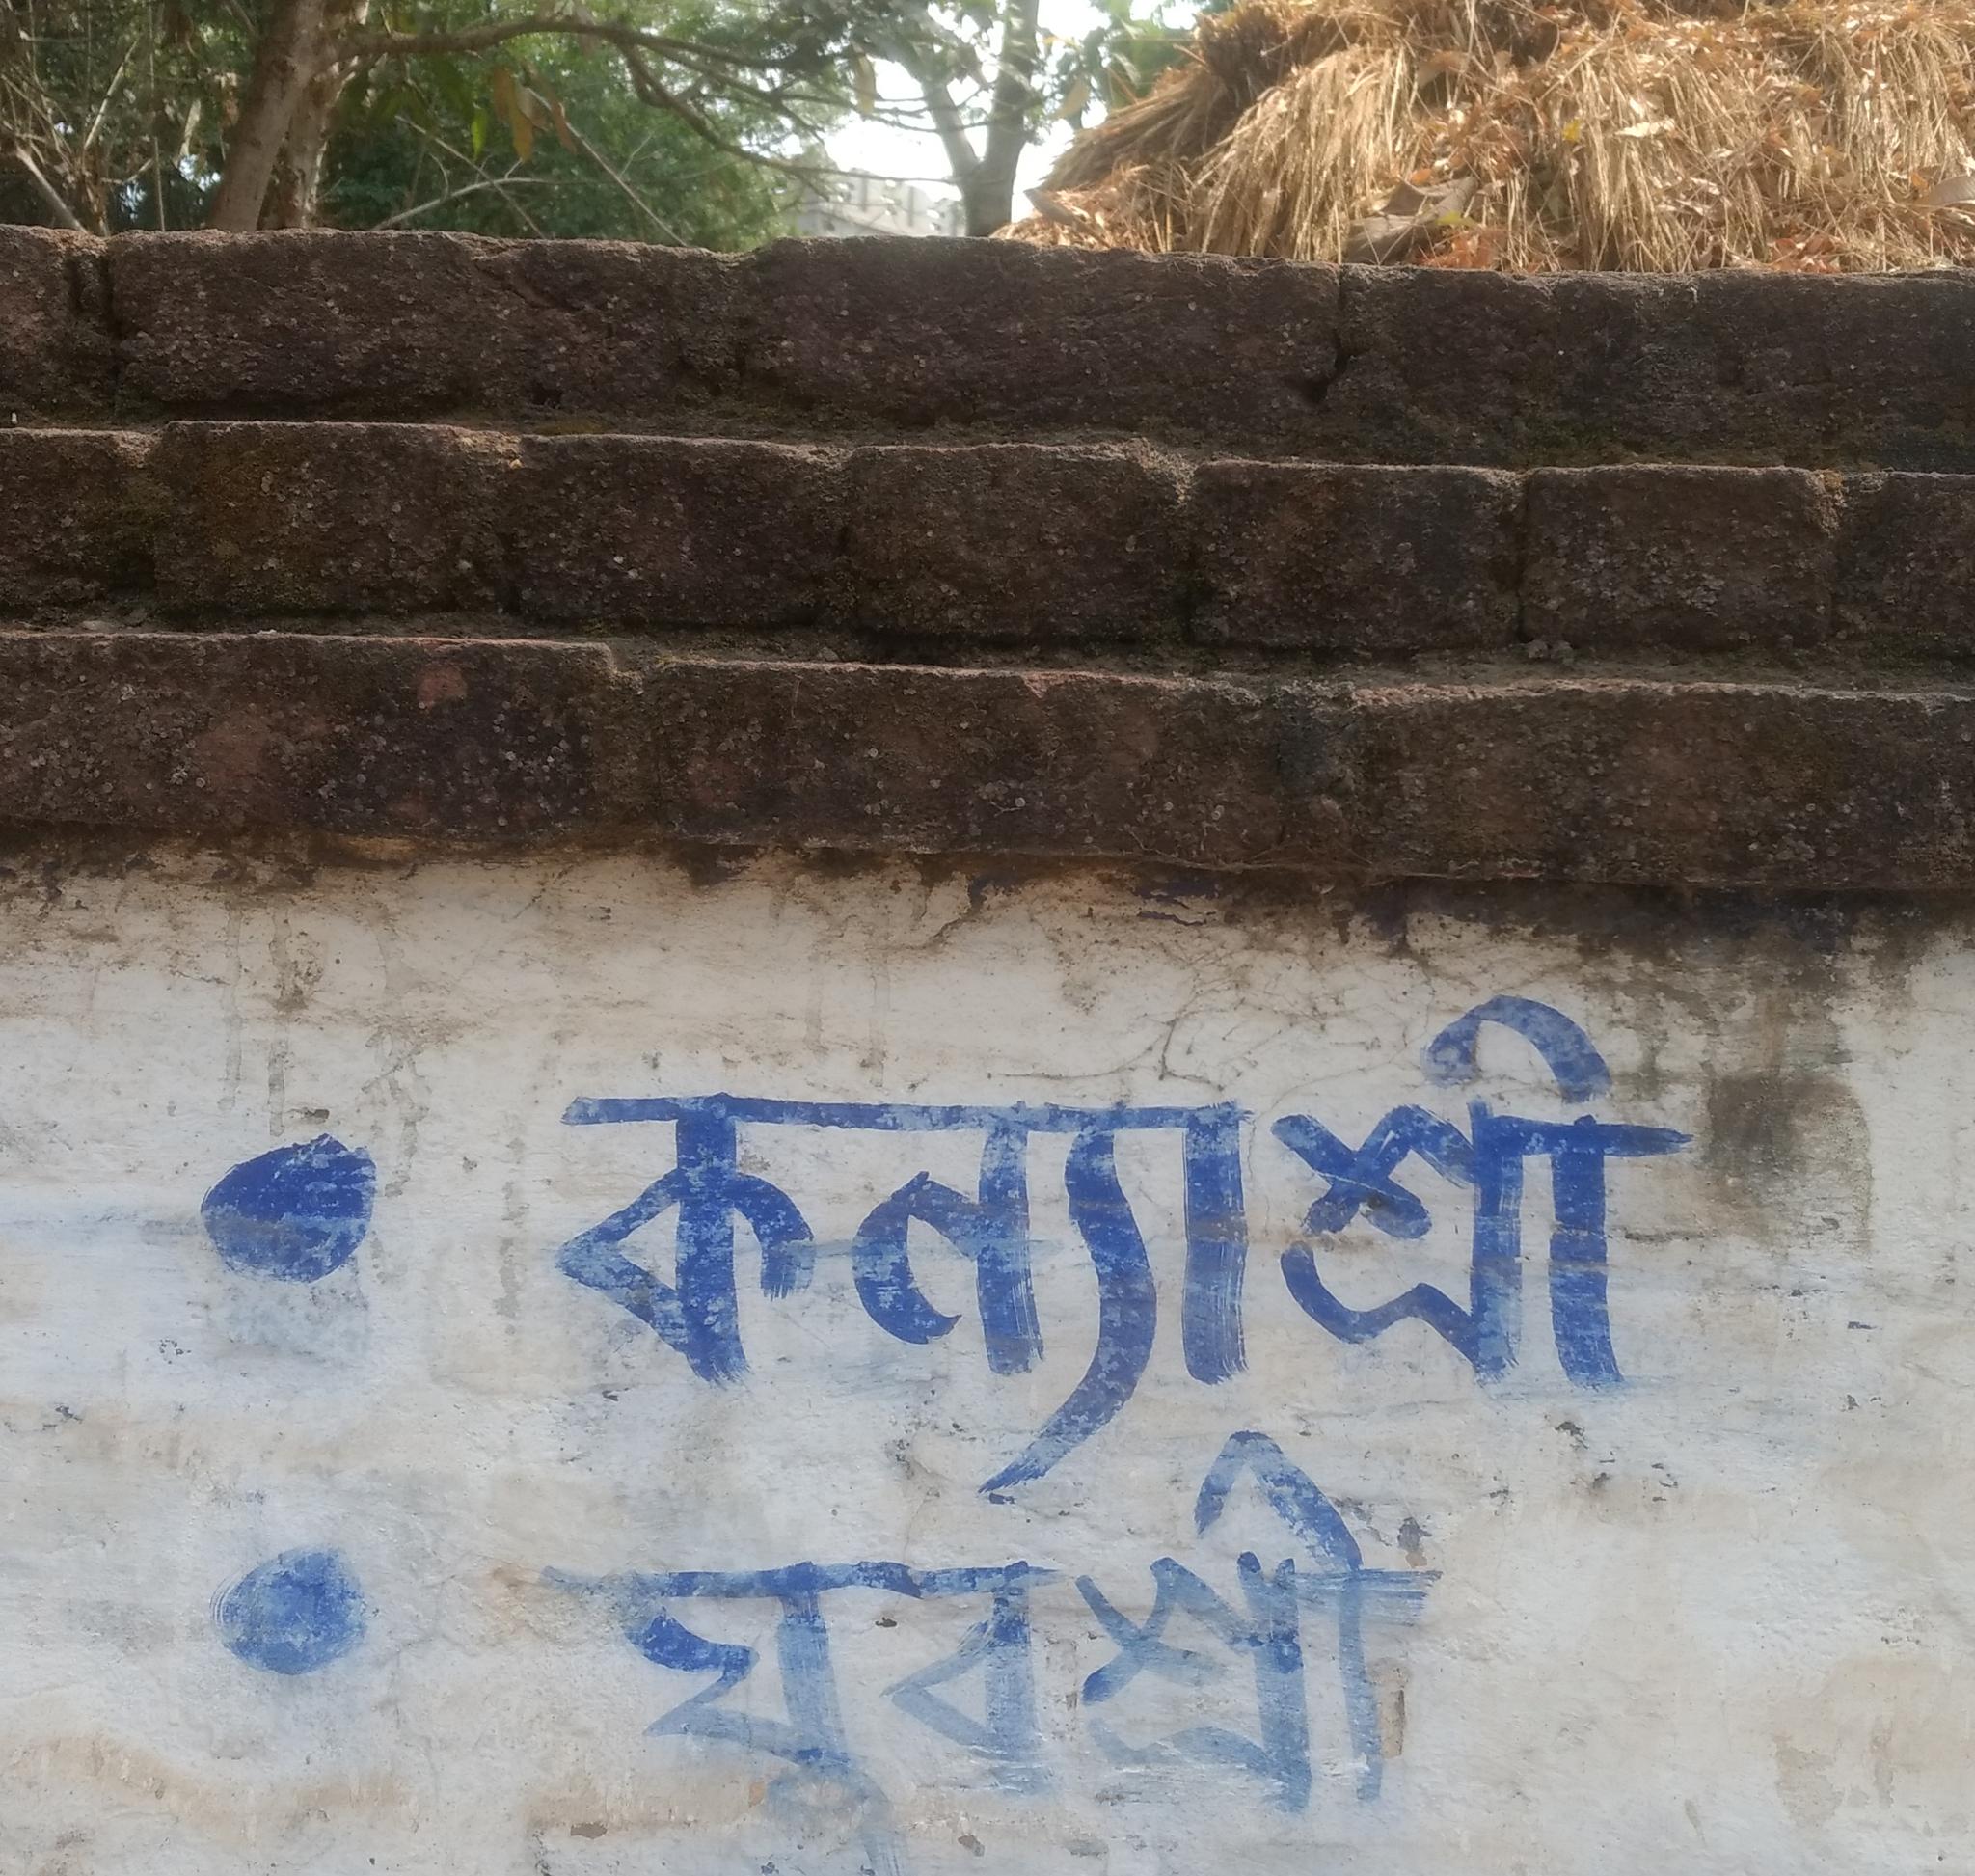 • কন্যাশ্রী
• যুবশ্রী